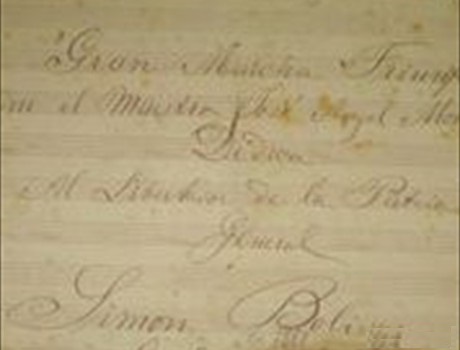 Gran Marcha Triunf
el Maestro José Angel Mon
Dedica
Al Libertador de la Patria
General
Simon Boliv